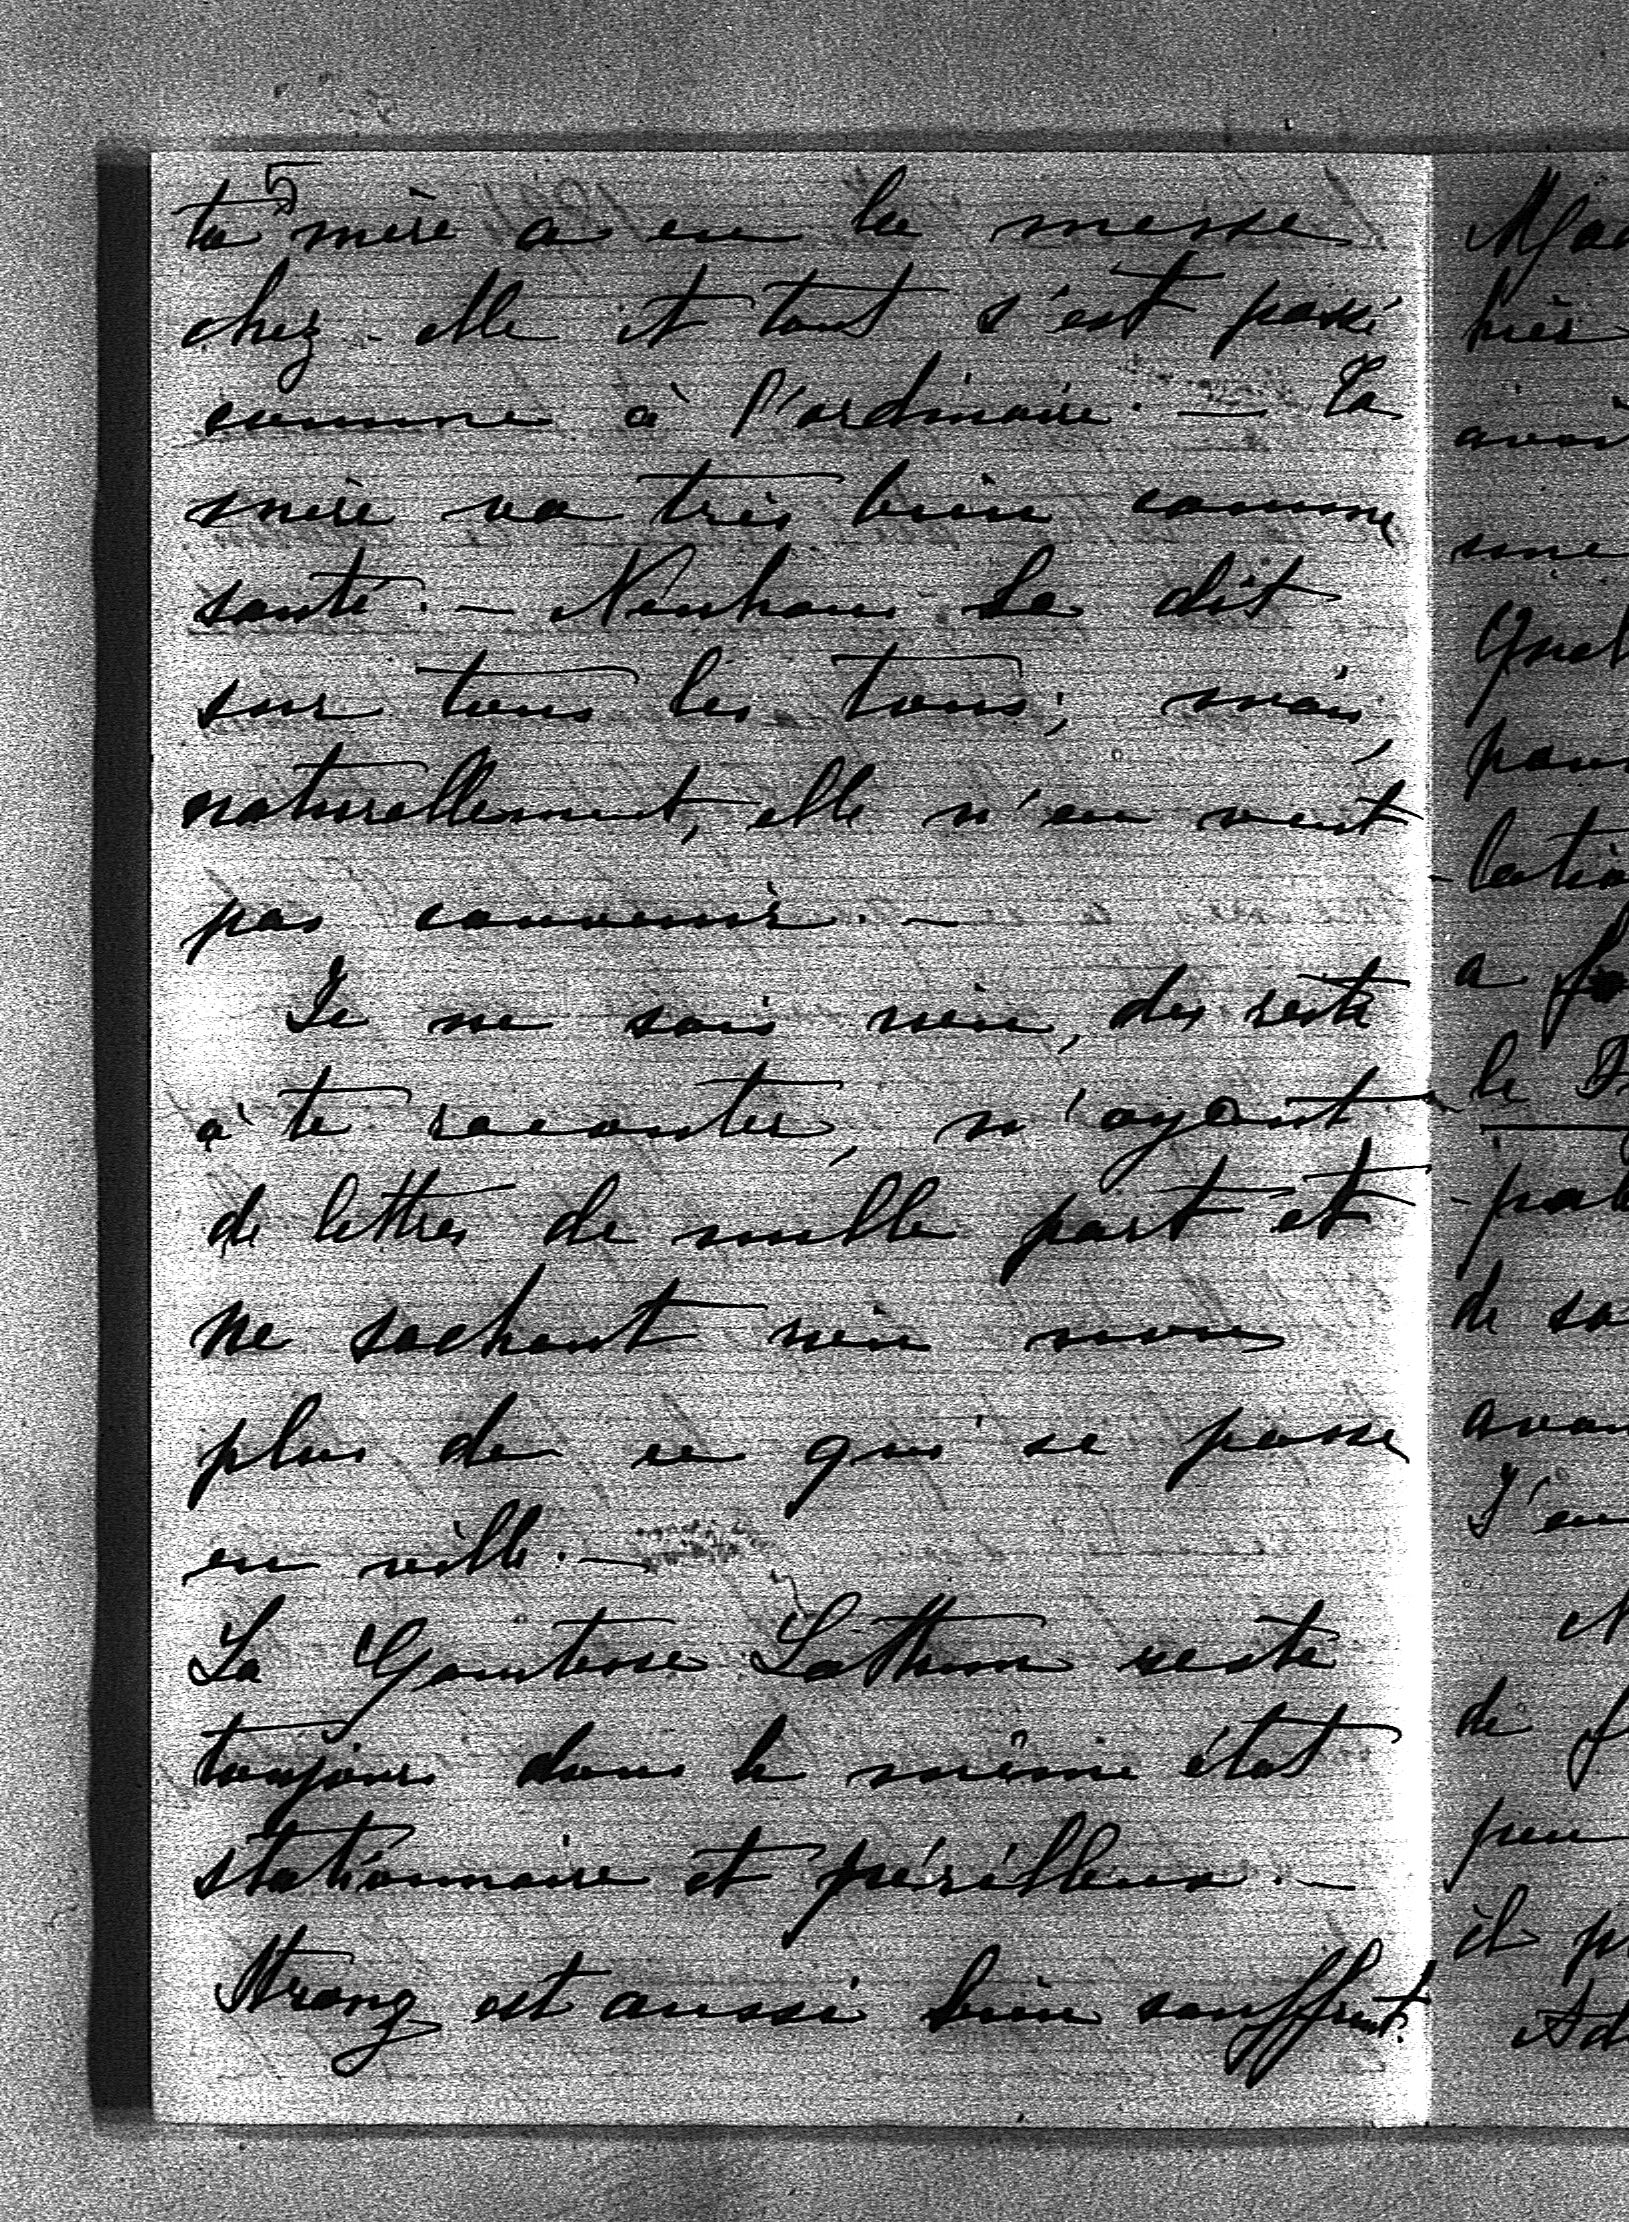 5
ta mère a eu la messe
chez elle et tout s'est passé
comme à l'ordinaire. — Ta
mère va très bien comme
santé. — Neuhaus le dit
sur tous les tons; mais,
naturellement, elle n'en veut
pas convenir. —
Je ne sais rien, du reste
à te raconter, n'ayant
de lettres de nulle part et
ne sachant rien non
plus de ce qui se passe
en ville. —
La Comtesse Lottum reste
toujours dans le même état
stationnaire et périlleux. —
Strang est aussi bien souffrant.